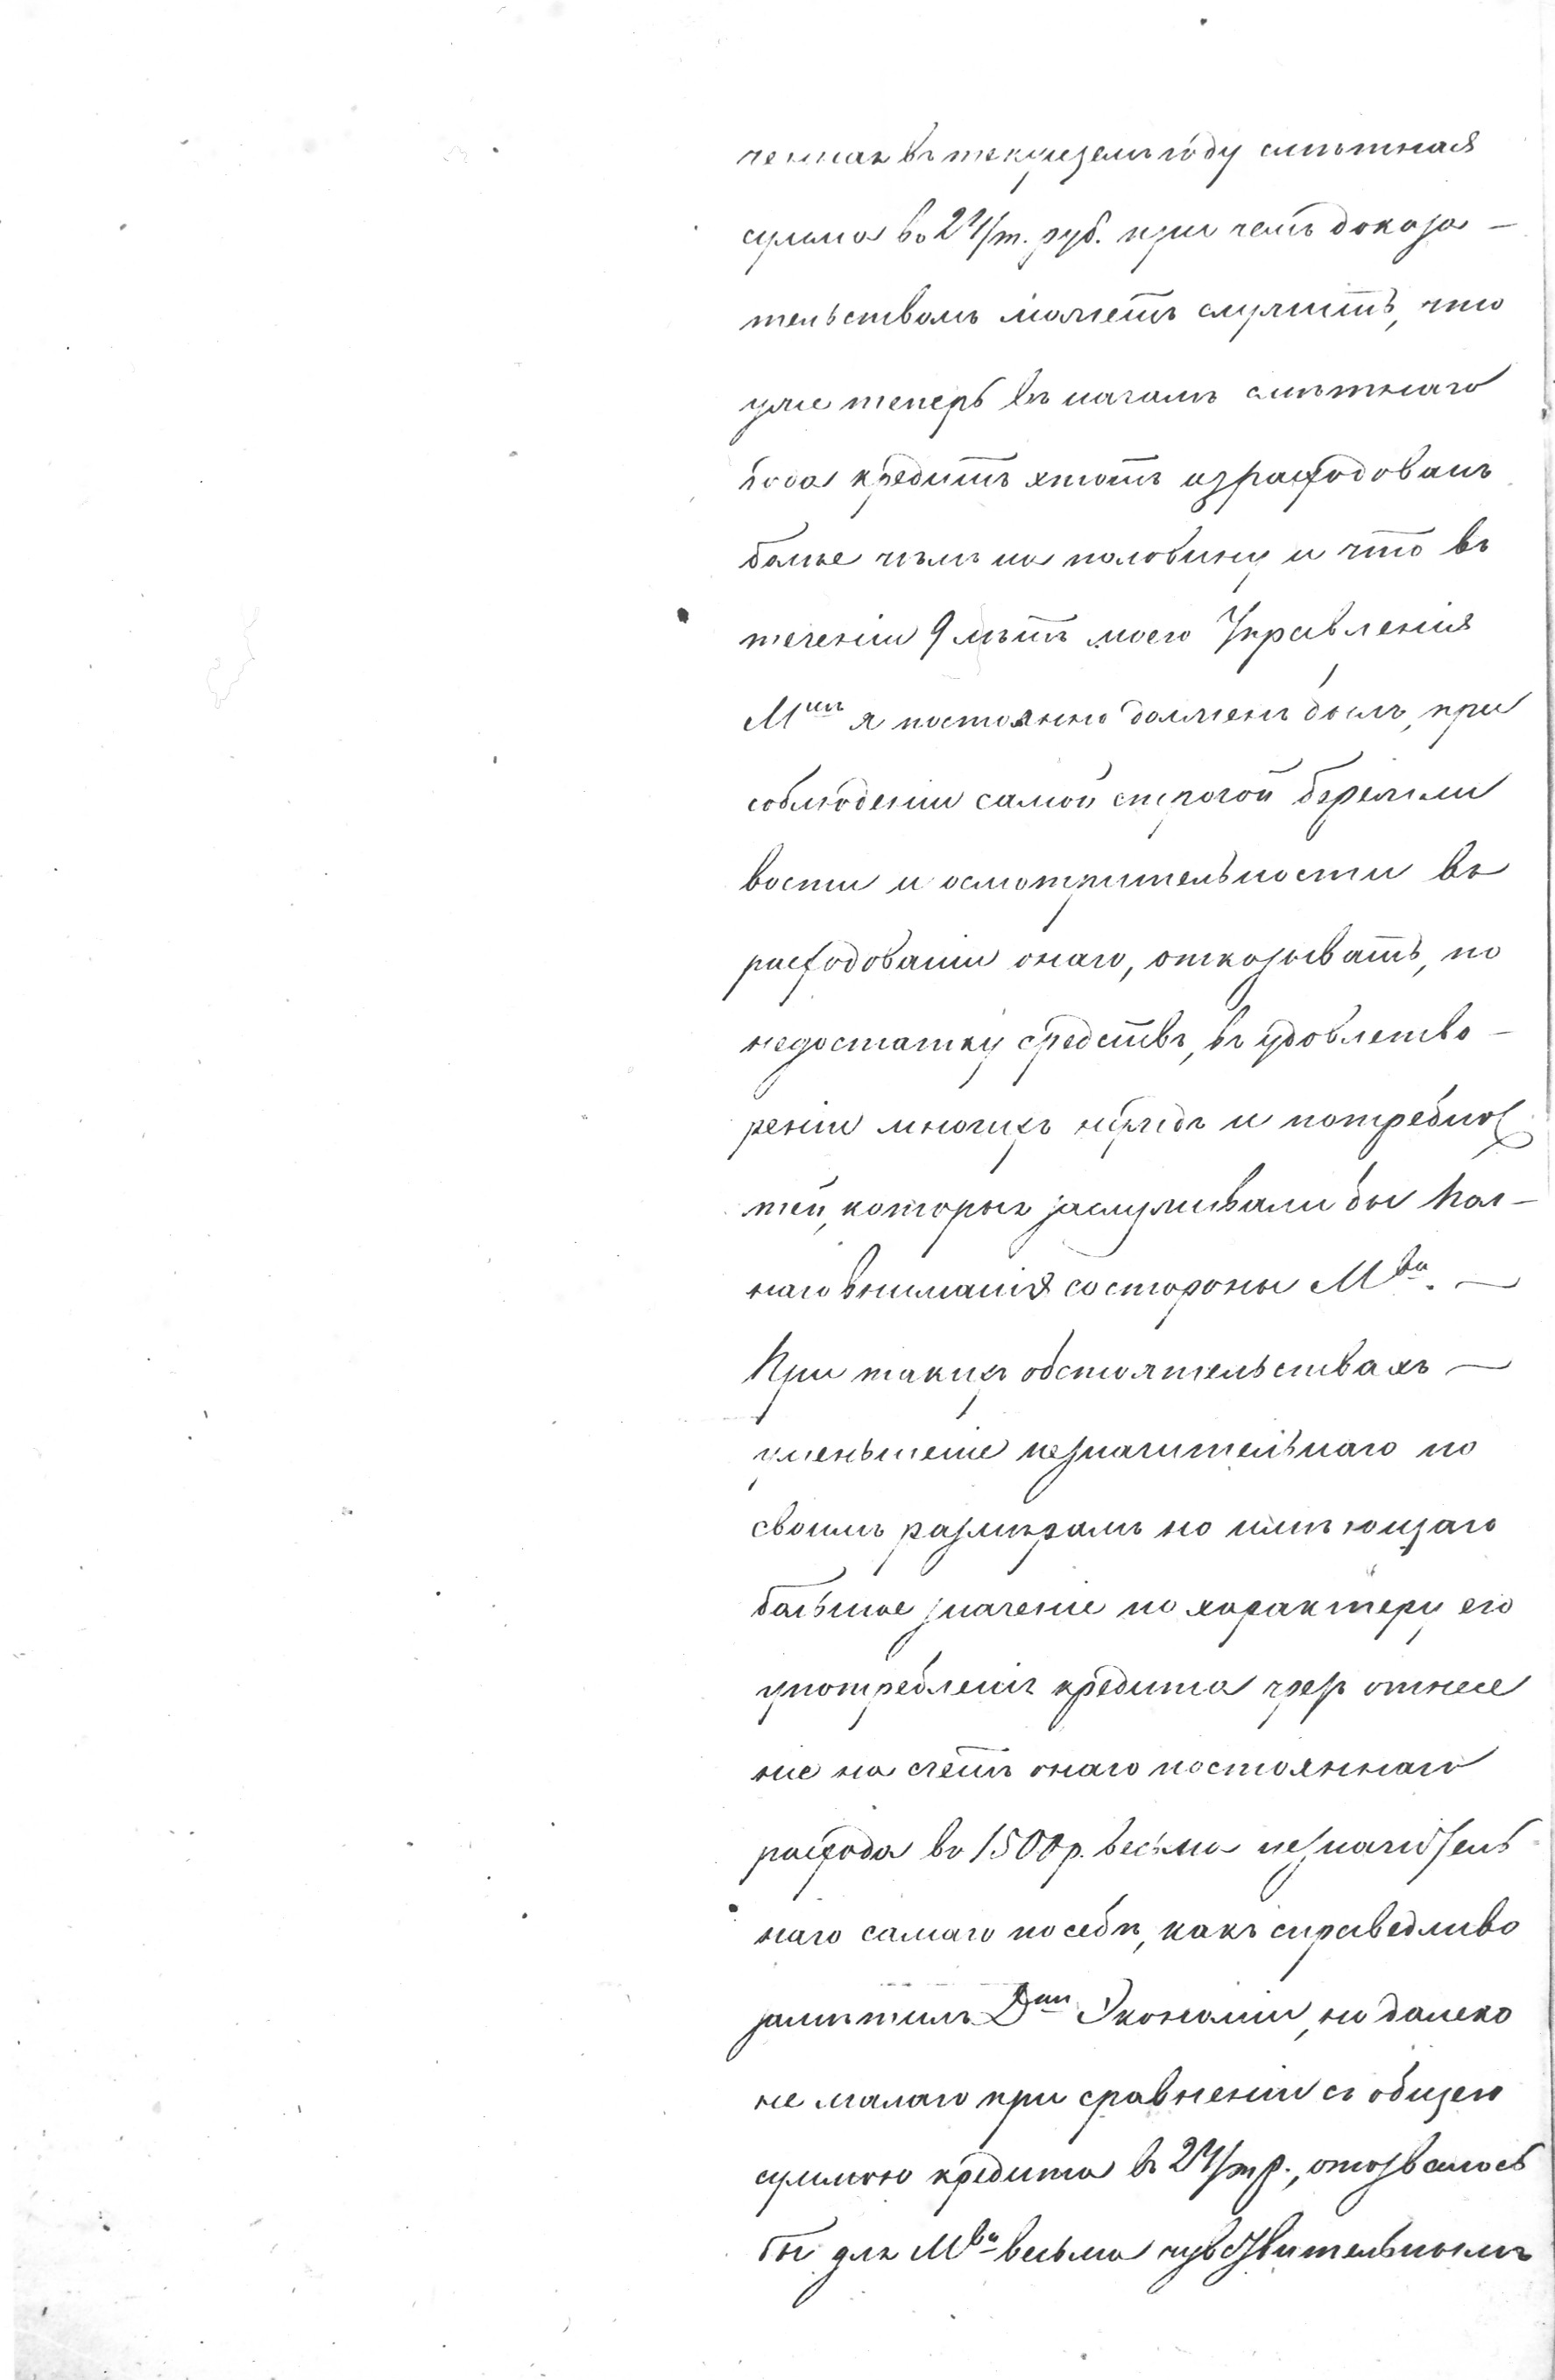 ченная въ текущемъ году смѣтная
сумма въ 24/т. руб. при чемъ доказа-
тельствомъ можетъ служить, что
уже теперь въ началѣ смѣтнаго
года кредитъ этотъ израсходованъ
болѣе чѣмъ на половину и что въ
теченіи 9 лѣтъ моего Управленія
М<sup>мъ</sup> я постоянно долженъ былъ, при
соблюденіи самой строгой бережли
вости и осмотрительности въ
расходованіи онаго, отказывать, по
недостатку средствъ, въ удовлетво-
реніи многихъ нуждъ и потребнос
тей, которыя заслуживали бы пол-
наго вниманія со стороны М<sup>ва</sup>. —
При такихъ обстоятельствахъ —
уменьшеніе незначительнаго по
своимъ размѣрамъ но имѣющаго
большое значеніе по характеру его
употребленія кредита чрезъ отнесе
ніе на счетъ онаго постояннаго
расхода въ 1500 р. весьма незначитель
наго самаго по себѣ, какъ справедливо
замѣтилъ Д<sup>тъ</sup> Экономіи, но далеко
не малаго при сравненіи съ общею
суммою кредита въ 24/т р., отозвалось
бы для М<sup>ва</sup> весьма чувствительнымъ